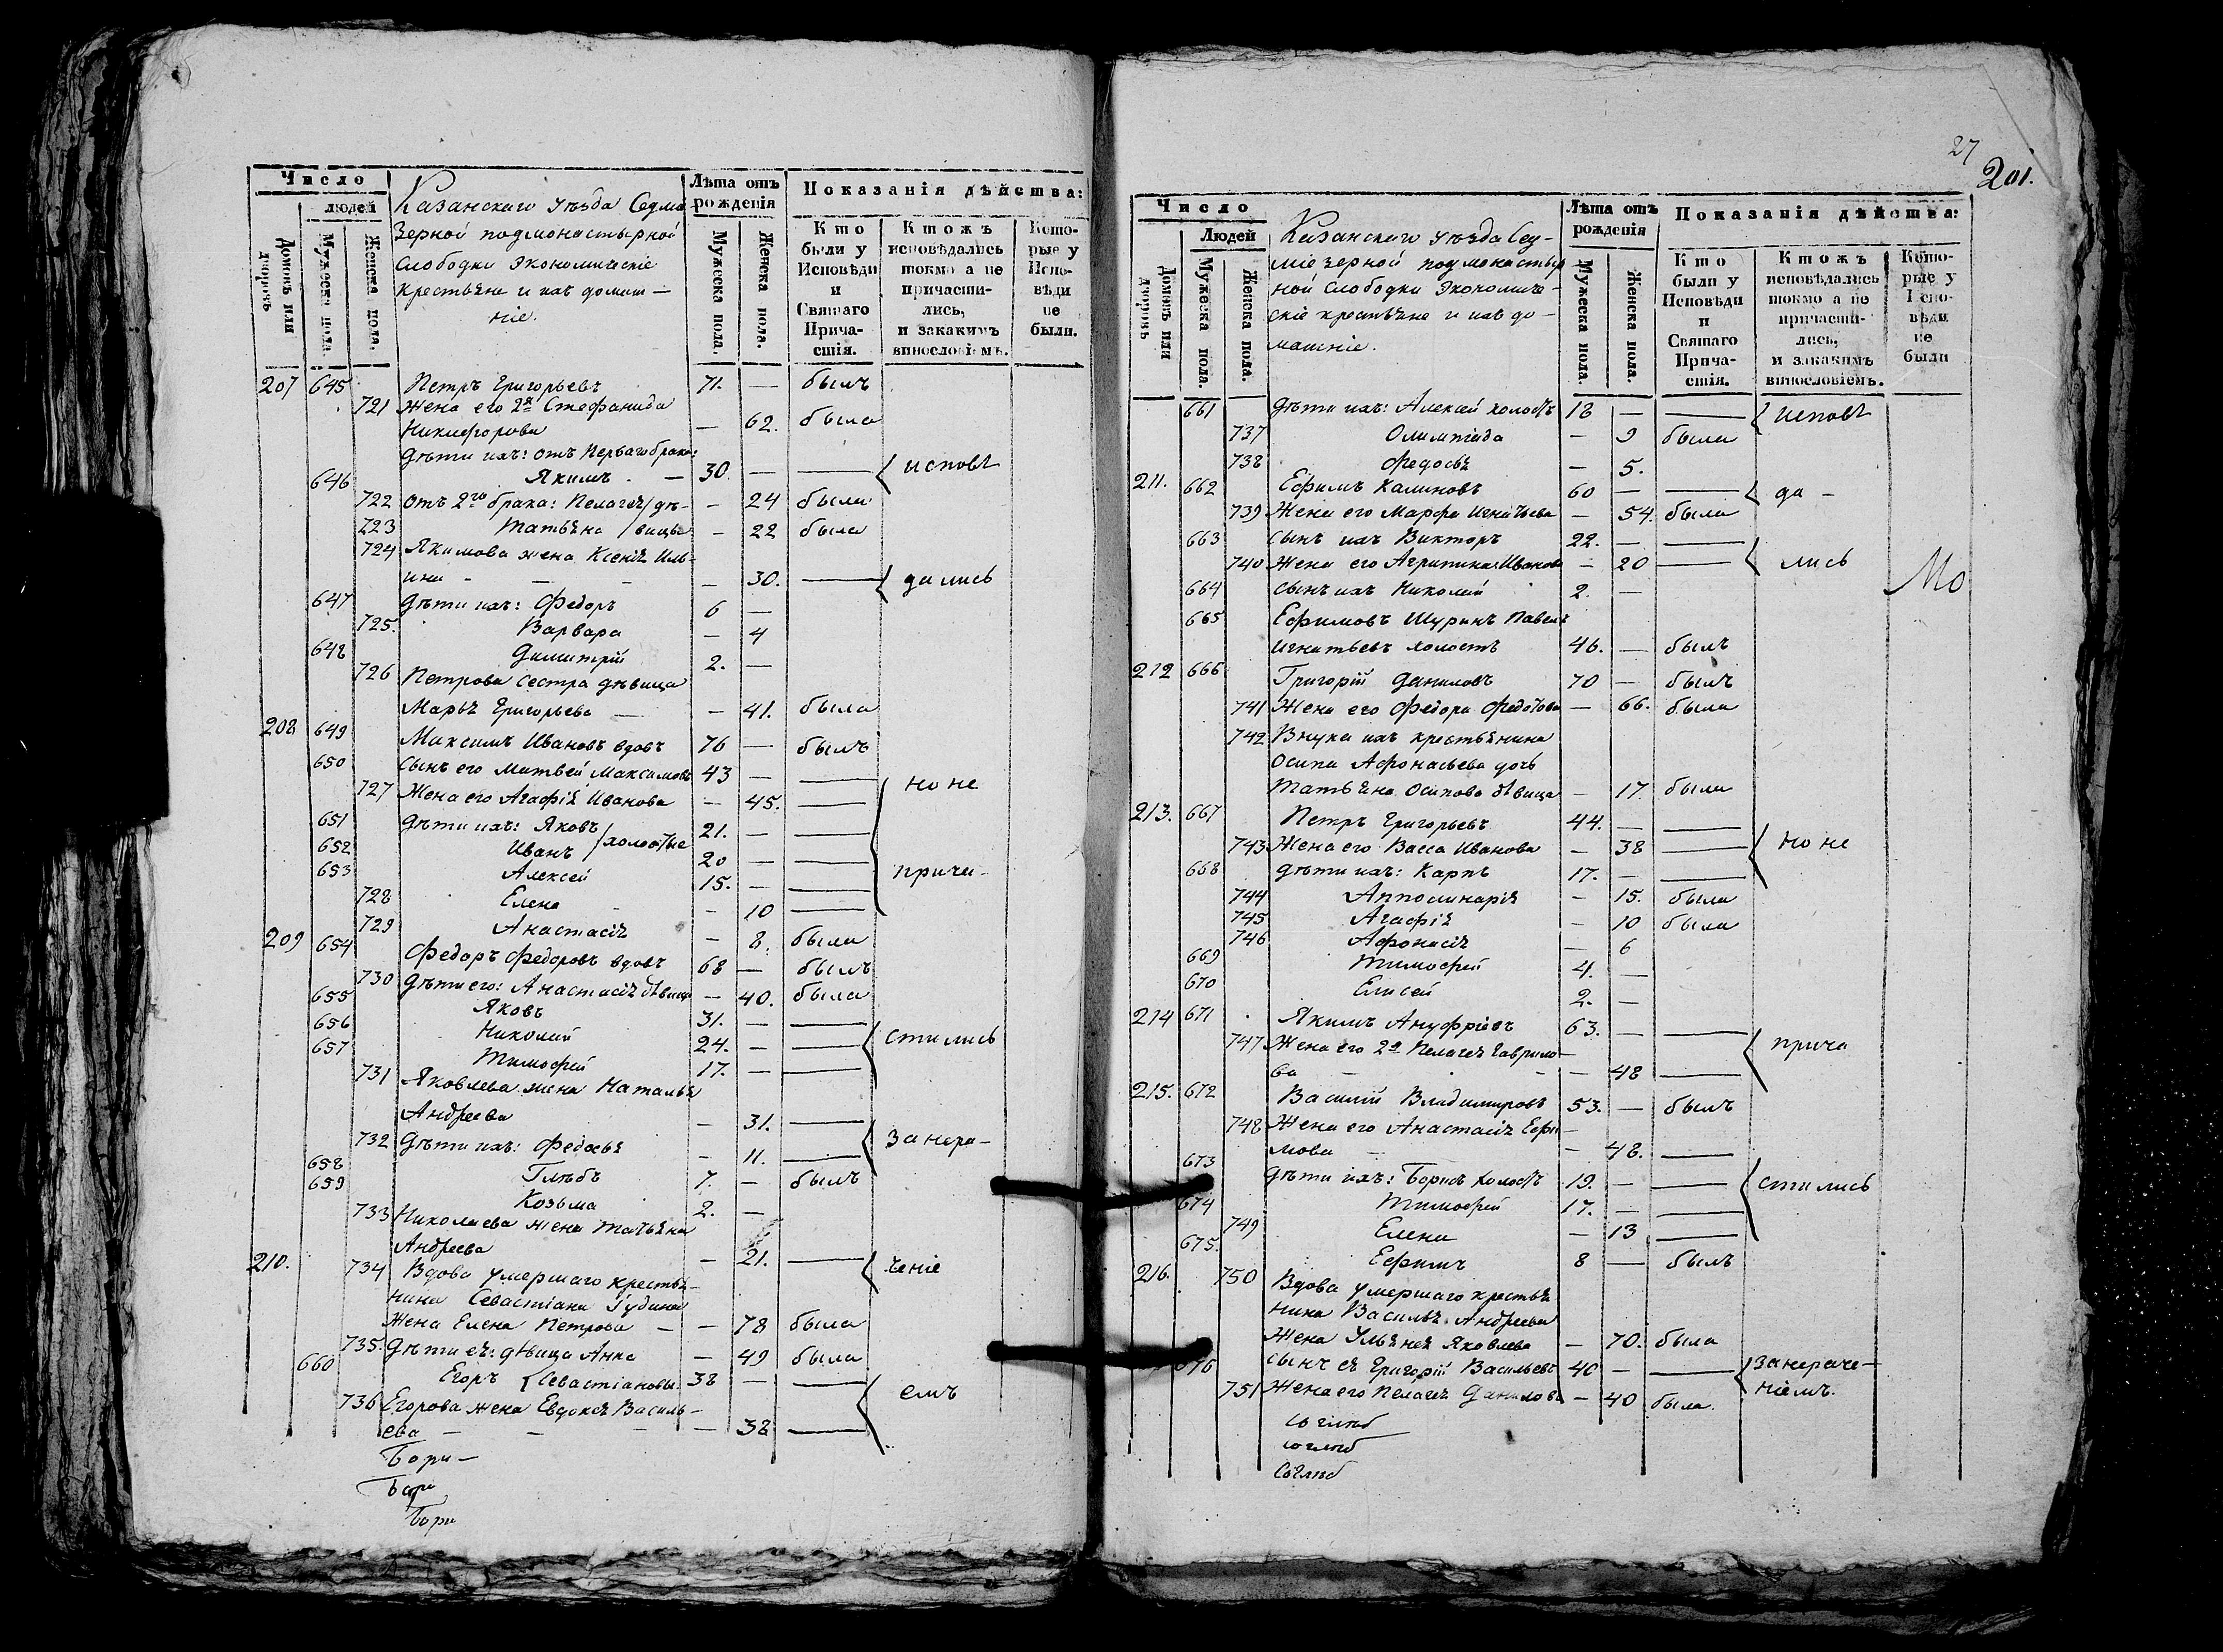 Число
людей
Домовъ или дворовъ
Мужеска пола.
Женска пола.
Казанскаго уѣзда Седмі
Зерной подмонастырной
Слободки Экономическіе
крестьяне и ихъ домаш—
ніе.
Лѣта отъ рожденія
Мужеска пола.
Женска пола.
Показанія дѣйства:
Кто были у Исповѣди и Святаго Прича-стія.
Ктожъ исповѣдались токмо а не причасти-лись, и закакимъ винословіемъ.
Кото-рые у Испо-вѣди не были.
207 645 Петръ Григорьевъ 71. — былъ
721 Жена его 2я Стефанида
Никифорова — 62. была
Дѣти ихъ: отъ перваго брака:
646 Якимъ — 30. — — исповѣ
722 отъ 2го брака: Пелагея / дѣ- — 24 была
723 Татьяна / вицы — 22 была
724 Якимова жена Ксенія Иль-
ина — — 30. — дались
647 Дѣти ихъ: Федоръ 6 —
725. Варвара — 4
648 Димитрій 2. —
726 Петрова сестра дѣвица
Марья Григорьева — — 41. была
208 649 Максимъ Ивановъ вдовъ 76 — былъ
650 Сынъ его Матвей Максимовъ 43 — —
727 Жена его Агафія Иванова — 45. — но не
651 Дѣти ихъ: Яковъ / холостые 21. — —
652 Иванъ 20 — —
653 Алексей 15. — — прича-
728 Елена — 10 —
729 Анастасія — 8. была
209 654 Федоръ Федоровъ вдовъ 68 — былъ
730 Дѣти его: Анастасія дѣвица — 40. была
655 Яковъ 31. — —
656 Николай 24. — — стились
657 Тимофей 17. — —
731 Яковлева жена Наталья
Андреева — 31. —
732 Дѣти ихъ: Федосья — 11. — За нера-
658 Глѣбъ 7. — былъ
659 Козьма 2. —
733 Николаева жена Татьяна
Андреева — 21. — ченіе
210. 734 Вдова умершаго крестья-
нина Севастіана Гудина
Жена Елена Петрова — — 78 была
735. Дѣти ея: дѣвица Анна — 49 была
660 Егоръ { Севастіановы. 38 — —
736 Егорова жена Евдокея Василь-
ева — — — 38 — емъ
Бори—
Бори
Бори
27
201.
Число
Людей
Домовъ или дворовъ
Мужеска пола.
Женска пола.
Казанскаго уѣзда Сед-
міезерной подмонастыр
ной Слободки Экономиче-
скіе крестьяне и ихъ до-
машніе.
Лѣта отъ рожденія
Мужеска пола.
Женска пола.
Показанія дѣйства:
Кто были у Исповѣди и Святаго Прича-стія.
Ктожъ исповѣдались токмо а не причасти-лись, и закакимъ винословіемъ.
Кото-рые у Испо-вѣди не были
661 Дѣти ихъ: Алексей холостъ 18 — — исповѣ
737 Олимпіада — 9 была
738 Федосья — 5.
211. 662 Ефимъ Калиновъ 60 — — да-
739 Жена его Марфа Игнатьева — 54. была
663 Сынъ ихъ Викторъ 22. — —
740 Жена его Агрипина Иванова — 20 — лись
664 Сынъ ихъ Николай 2. —
Мо
665 Ефимовъ Шуринъ Павелъ
Игнатьевъ холостъ 46. — былъ
212 666 Григорій Даниловъ 70 — былъ
741 Жена его Федора Федотова — 66. была
742 Внука ихъ крестьянина
Осипа Афонасьева дочь
Татьяна Осипова дѣвица — 17. была
213. 667 Петръ Григорьевъ 44. — —
743 Жена его Васса Иванова — 38 — но не
668 Дѣти ихъ: Карпъ 17. — —
744 Апполинарія — 15. была
745 Агафія — 10 была
746 Афонасія — 6
669 Тимофей 4. —
670 Елисей 2. —
214 671 Якимъ Ануфріевъ 63. — —
747 Жена его 2я Пелагея Гаврило-
ва — — 48 — прича
215. 672 Василій Владимировъ 53. — былъ
748 Жена его Анастасія Ефи-
мова — 48. —
673 Дѣти ихъ: Борисъ холостъ 19. — — стились
674 Тимофей 17. — —
749 Елена — 13 —
675. Ефимъ 8 — былъ
216. 750 Вдова умершаго крестья
нина Василья Андреева
Жена Ульянея Яковлева — 70. была
676 Сынъ ея Григорій Васильевъ 40 — — За нераче-
751 Жена его Пелагея Данилова — 40 была. ніемъ.